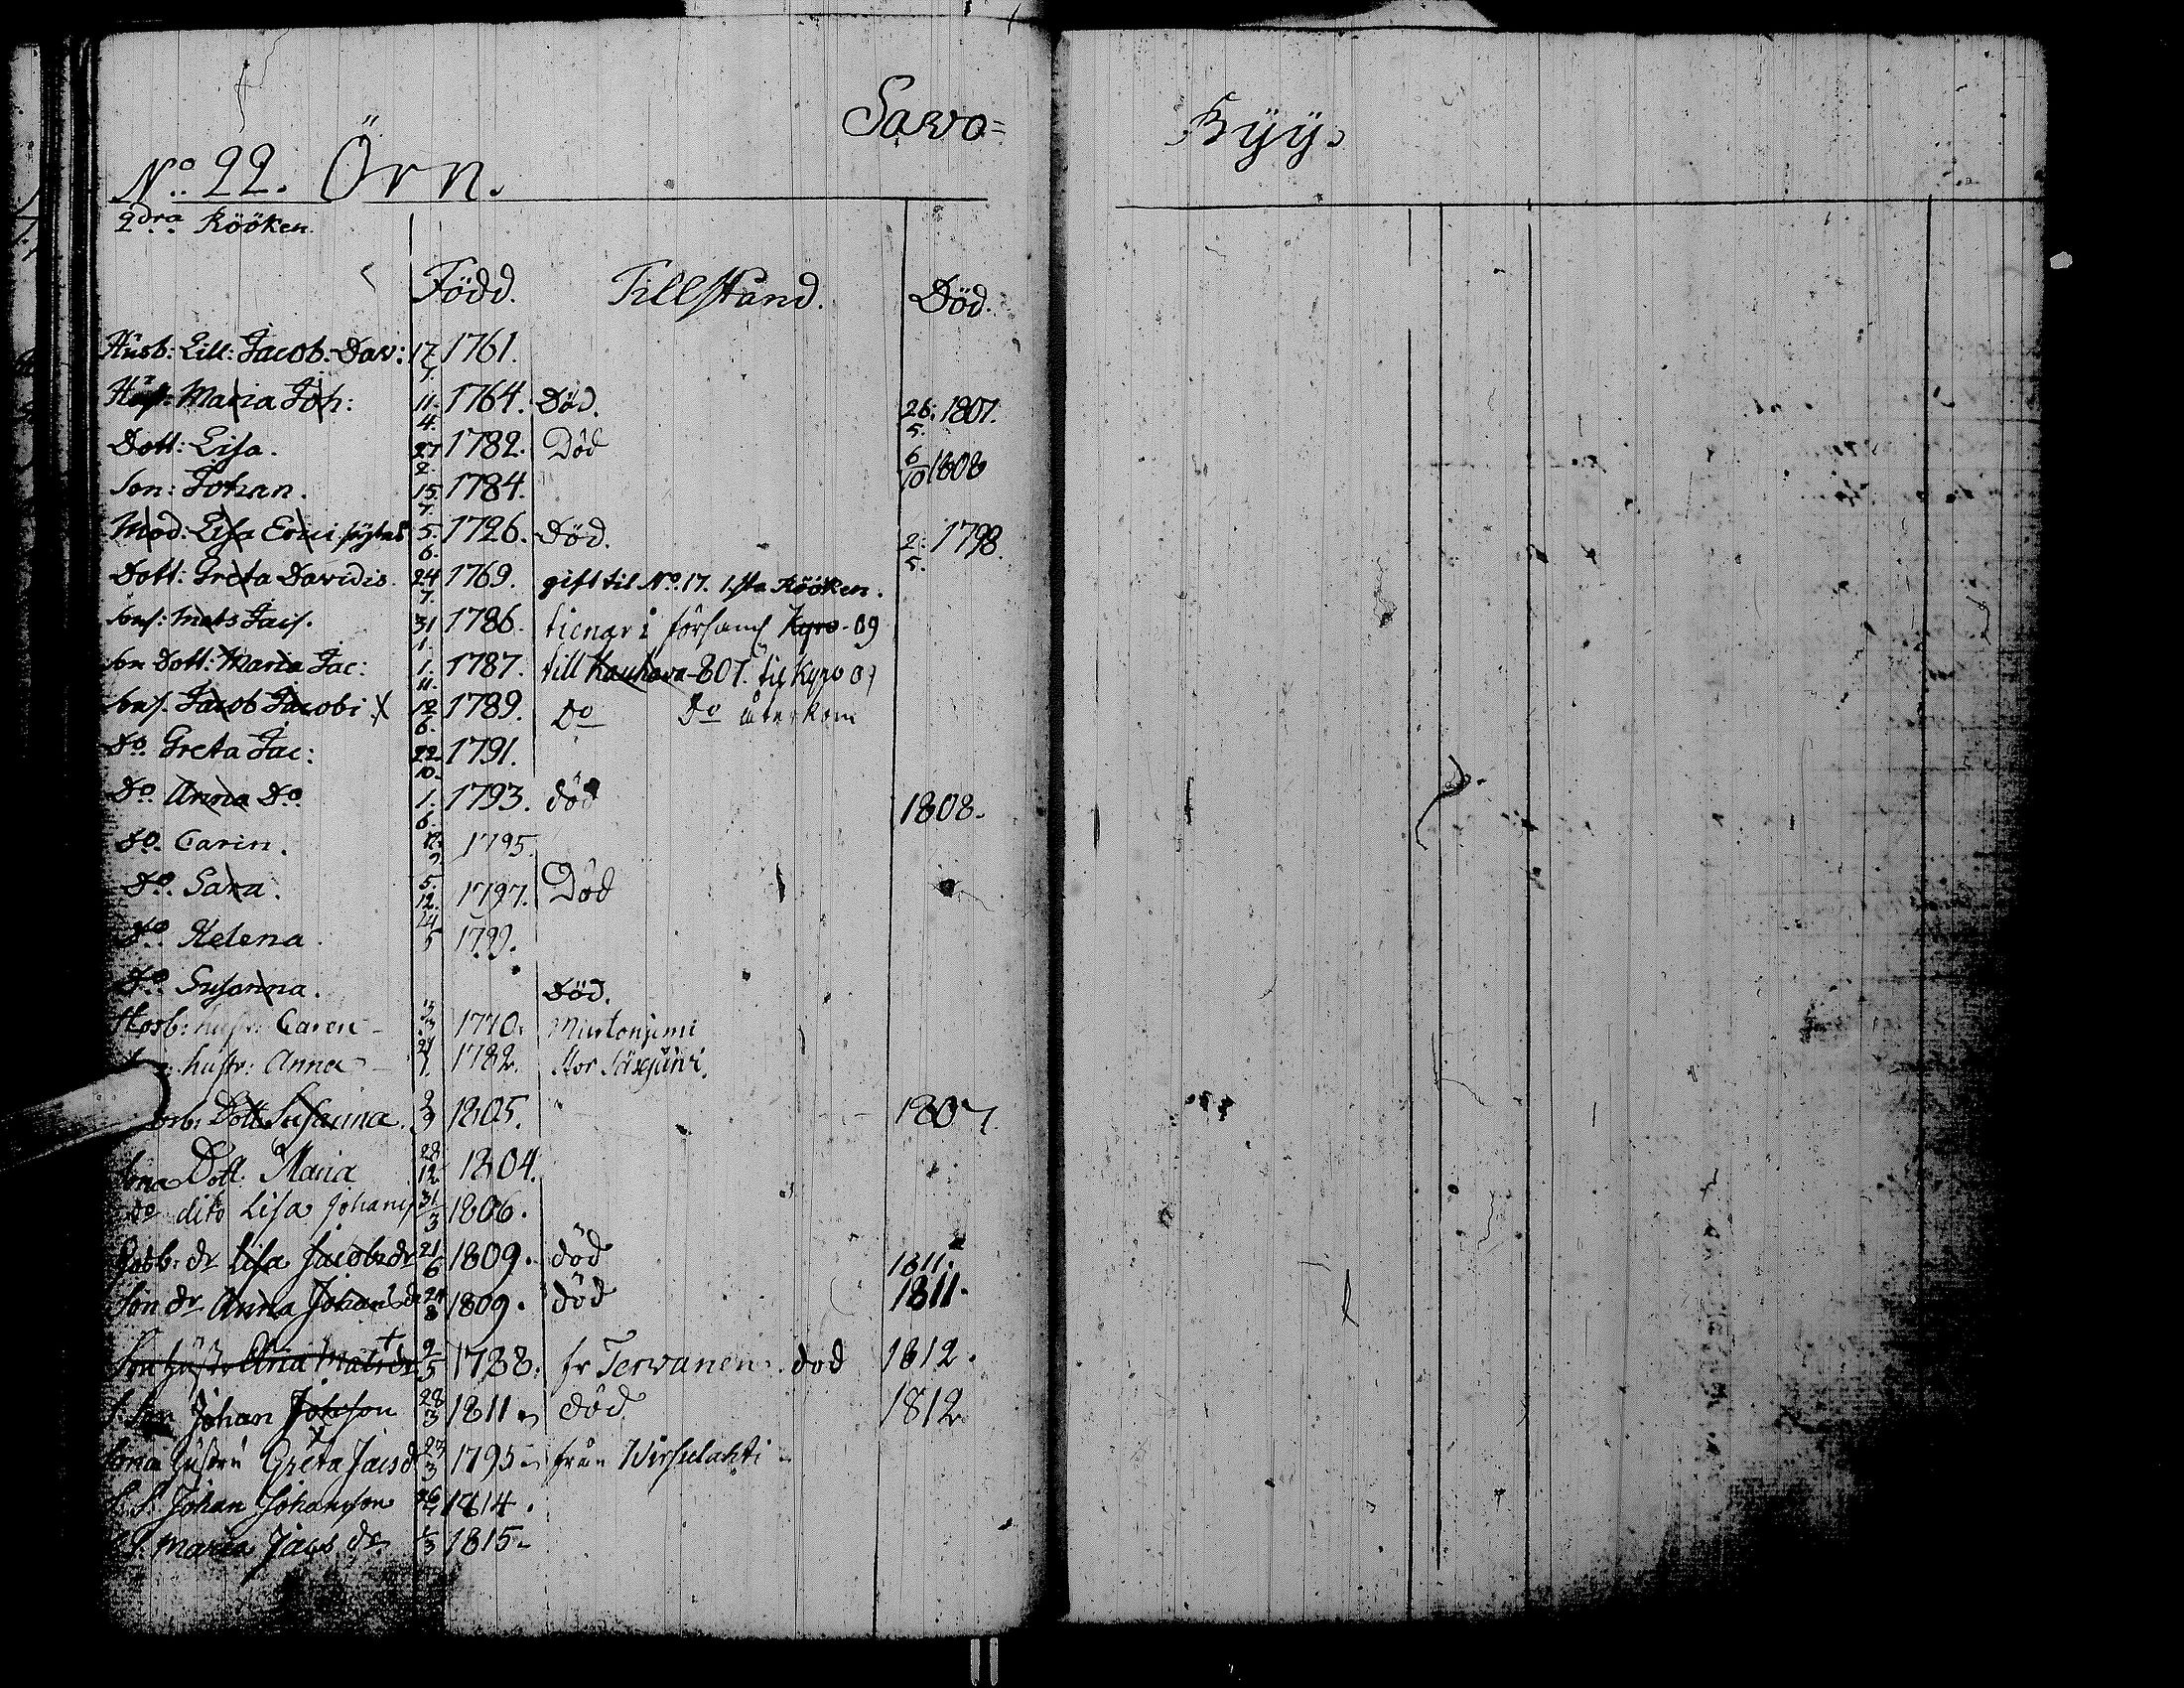 Savo=
Kyÿ.
No. 22. Örn.
2dra Rööken.
Född. Tillstånd. Död.
Husb: Lill: Jacob. Dav: 17. 7. 1761.
Hust: Maria Joh: 11. 4. 1764. Död. 26. 5. 1807.
Dott: Lisa. 27 2. 1782. Död 6 10 1808
Son: Johan. 15. 7. 1784.
Mod: Lisa Erici 5. 6. 1726. Död. 2. 5. 1798.
Dott: Greta Davidis. 24 7. 1769. gift til No. 17. 1sta Rööken.
Mats Jac. 31 1. 1786. tienar i Kyro - 09
Dott: Maria Jac: 1. 11. 1787. till Kauhava - 807. til Kyro
Jacob Jacobi X 12 6. 1789. Do Do återkom
Do. Greta Jac: 22. 10. 1791.
Do. Anna Do. 1. 6. 1793. död 1808.
Do. Carin. 12. 1795.
Do. Sara. 5. 12. 1797. Död
Do. Helena. 14 5
Do. Susanna. Död.
Hosb: hustr: Caren - 3 1770.
hustr: Anna - 1. 1782. Stor
Dott Susanna. 1805. 1807.
Sona Dott. Maria 28 12 1804.
Do dito Lisa Johans 31 3 1806.
dr Lisa Jacobs dr 21 6 1809. död 1811.
Son dr Anna Johans d 24 8 1809. död 1811.
Son hustr Ana Mats dr + 9 5 1788. fr Tervanen. död 1812.
S: Son Johan Johson 28 3 1811. död 1812
Sona hustru Greta Jacs d 23 3 1795 från Wirsulahti
S. S. Johan Johanson 26 1814.
Maria Jacs dr 1 3 1815.